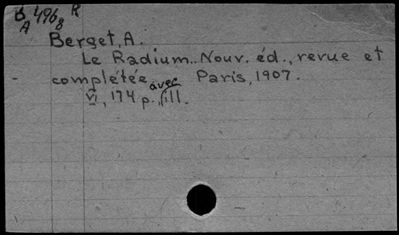 B 496 R
A 8
Berget, A.
Le Radium.. Nouv. éd., revue et
complétée avec Paris, 1907.
VI, 174 p., ill.